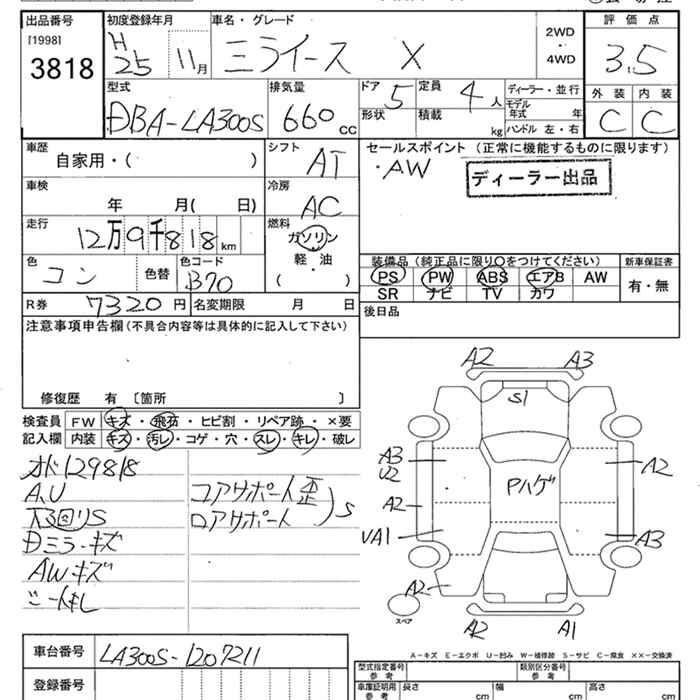 出品番号 初度登録年月 車名・グレード 評価点
[1998] H 2WD
3818 25 11月 ミライース X ・ 3.5
4WD
型式 排気量 ドア 5 定員 4人 ディーラー・並行 外装 内装
モデル年式 年
DBA-LA300S 660 CC 形状 積載 kg ハンドル 左・右 C C
車歴 シフト セールスポイント (正常に機能するものに限ります)
自家用・( ) AT ・AW ディーラー出品
車検 冷房
年 月( 日) AC
走行 燃料
12万9千818km ガソリン
軽・油
( )
装備品 (純正品に限り○をつけてください) 新車保証書
色 色替 色コード PS PW ABS エアB AW 有・無
コン B70 SR ナビ TV カワ
R券 7320円 名変期限 月 日 後日品
注意事項申告欄(不具合内容等は具体的に記入して下さい)
修復歴 有 〔箇所 〕
検査員 FW キズ・飛石・ヒビ割・リペア跡・×要
記入欄 内装 キズ・汚レ・コゲ・穴・スレ・キレ・破レ
129818
A,U コアサポート歪
下回りS コアサポート S
Dミラーキズ
AWキズ
A2 A3
S1
A3
U2
A2
Pハゲ
A2
VA1
A3
A2
スペア
A2 A1
A-キズ E-エクボ U-凹み W-補修跡 S-サビ C-腐食 ××-交換済
車台番号 LA300S-1207211
登録番号
型式指定番号 参考 類別区分番号 参考
車庫証明用 参考 長さ cm 幅 cm 高さ cm